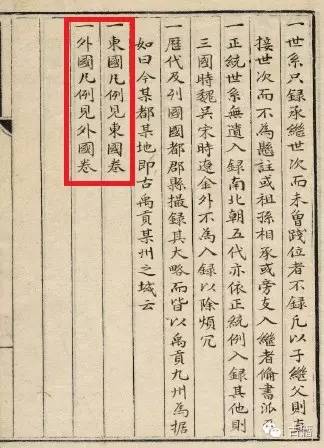 一世系只録承継世次而未曾践位者不録凡以子継父則直
接世次而不為懸註或祖孫相承或旁支入継者俻書派
一正統世系無遺入録南北朝五代亦依正統例入録其他則
三國時魏吳宋時遼金外不為入録以除煩冗
一歷代及列國國都郡縣撮録其大略而皆以禹貢九州為据
如曰今某都某地即古禹貢某州之域云
一東國凡例見東國卷
一外國凡例見外國卷